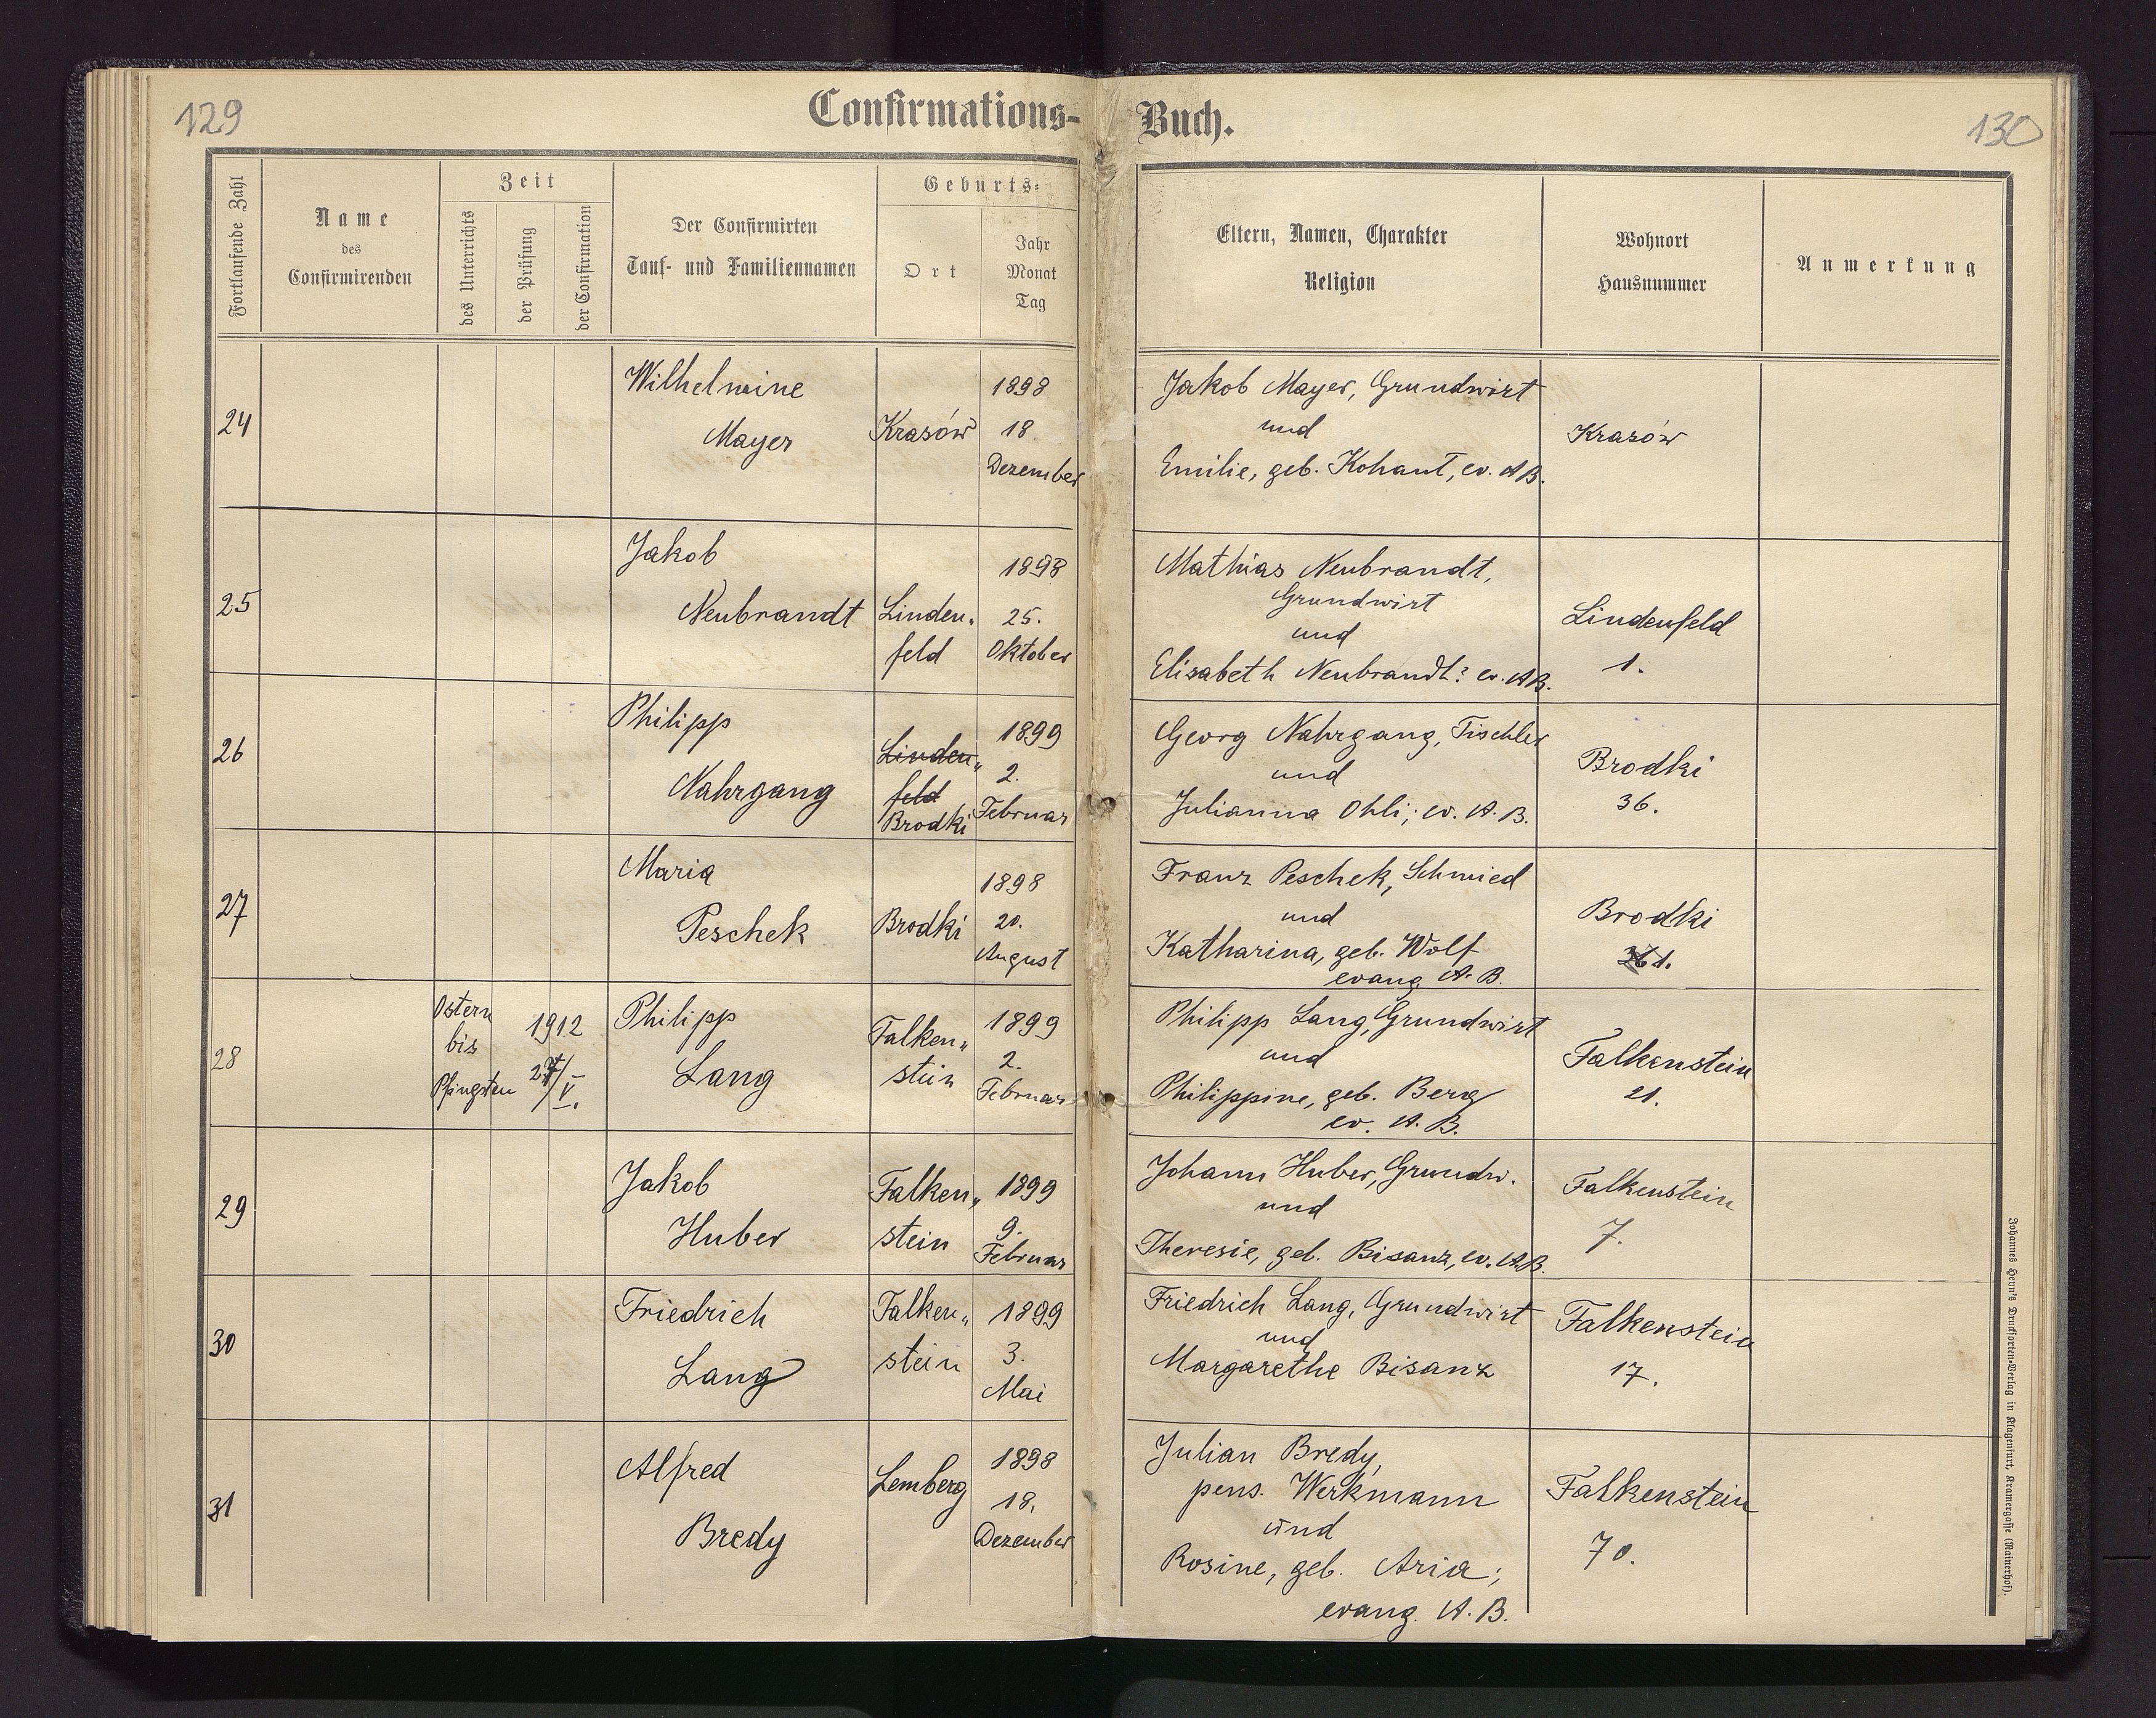 129
Confirmations-Buch.
130
Fortlaufende Zahl
Name
des
Confirmirenden
Zeit
des Unterrichts
der Prüfung
der Confirmation
Der Confirmirten
Tauf- und Familiennamen
Geburts-
Ort
Jahr
Monat
Tag
Eltern, Namen, Charakter
Religion
Wohnort
Hausnummer
Anmerkung
24
Wilhelmine
Mayer
Krasów
1898
18
Dezember
Jakob Mayer, Grundwirt
und
Emilie, geb. Kohaut, ev. A B.
Krasów
25
Jakob
Neubrandt
Linden„
feld
1898
25.
Oktober
Mathias Neubrandt,
Grundwirt
und
Elisabeth Neubrandt: ev. A B.
Lindenfeld
1.
26
Philipp
Nahrgang
Linden„
feld
Brodki
1899
2.
Februar
Georg Nahrgang, Tischler
und
Julianna Ohli; ev. A. B.
Brodki
36.
27
Maria
Peschek
Brodki
1898
20.
August
Franz Peschek, Schmied
und
Katharina, geb. Wolf
evang. A. B.
Brodki
1.
28
Ostern
bis
Pfingsten
1912
/V.
Philipp
Lang
Falken„
stein
1899
2.
Februar
Philipp Lang, Grundwirt
und
Philippine, geb. Berg
ev. A. B.
Falkenstein
21.
29
Jakob
Huber
Falken„
stein
1899
9.
Februar
Johann Huber, Grundw.
und
Theresie, geb. Bisanz, ev. A.B.
Falkenstein
7.
30
Friedrich
Lang
Falken„
stein
1899
3.
Mai
Friedrich Lang, Grundwirt
und
Margarethe Bisanz
Falkenstein
17.
31
Alfred
Bredy
Lemberg
1898
18.
Dezember
Julian Bredy,
pens. Werkmann
und
Rosine, geb. Aria;
evang. A. B.
Falkenstein
70.
Johannes Heyn's Drucksorten-Verlag in Klagenfurt, Kramergasse (Rainerhof).